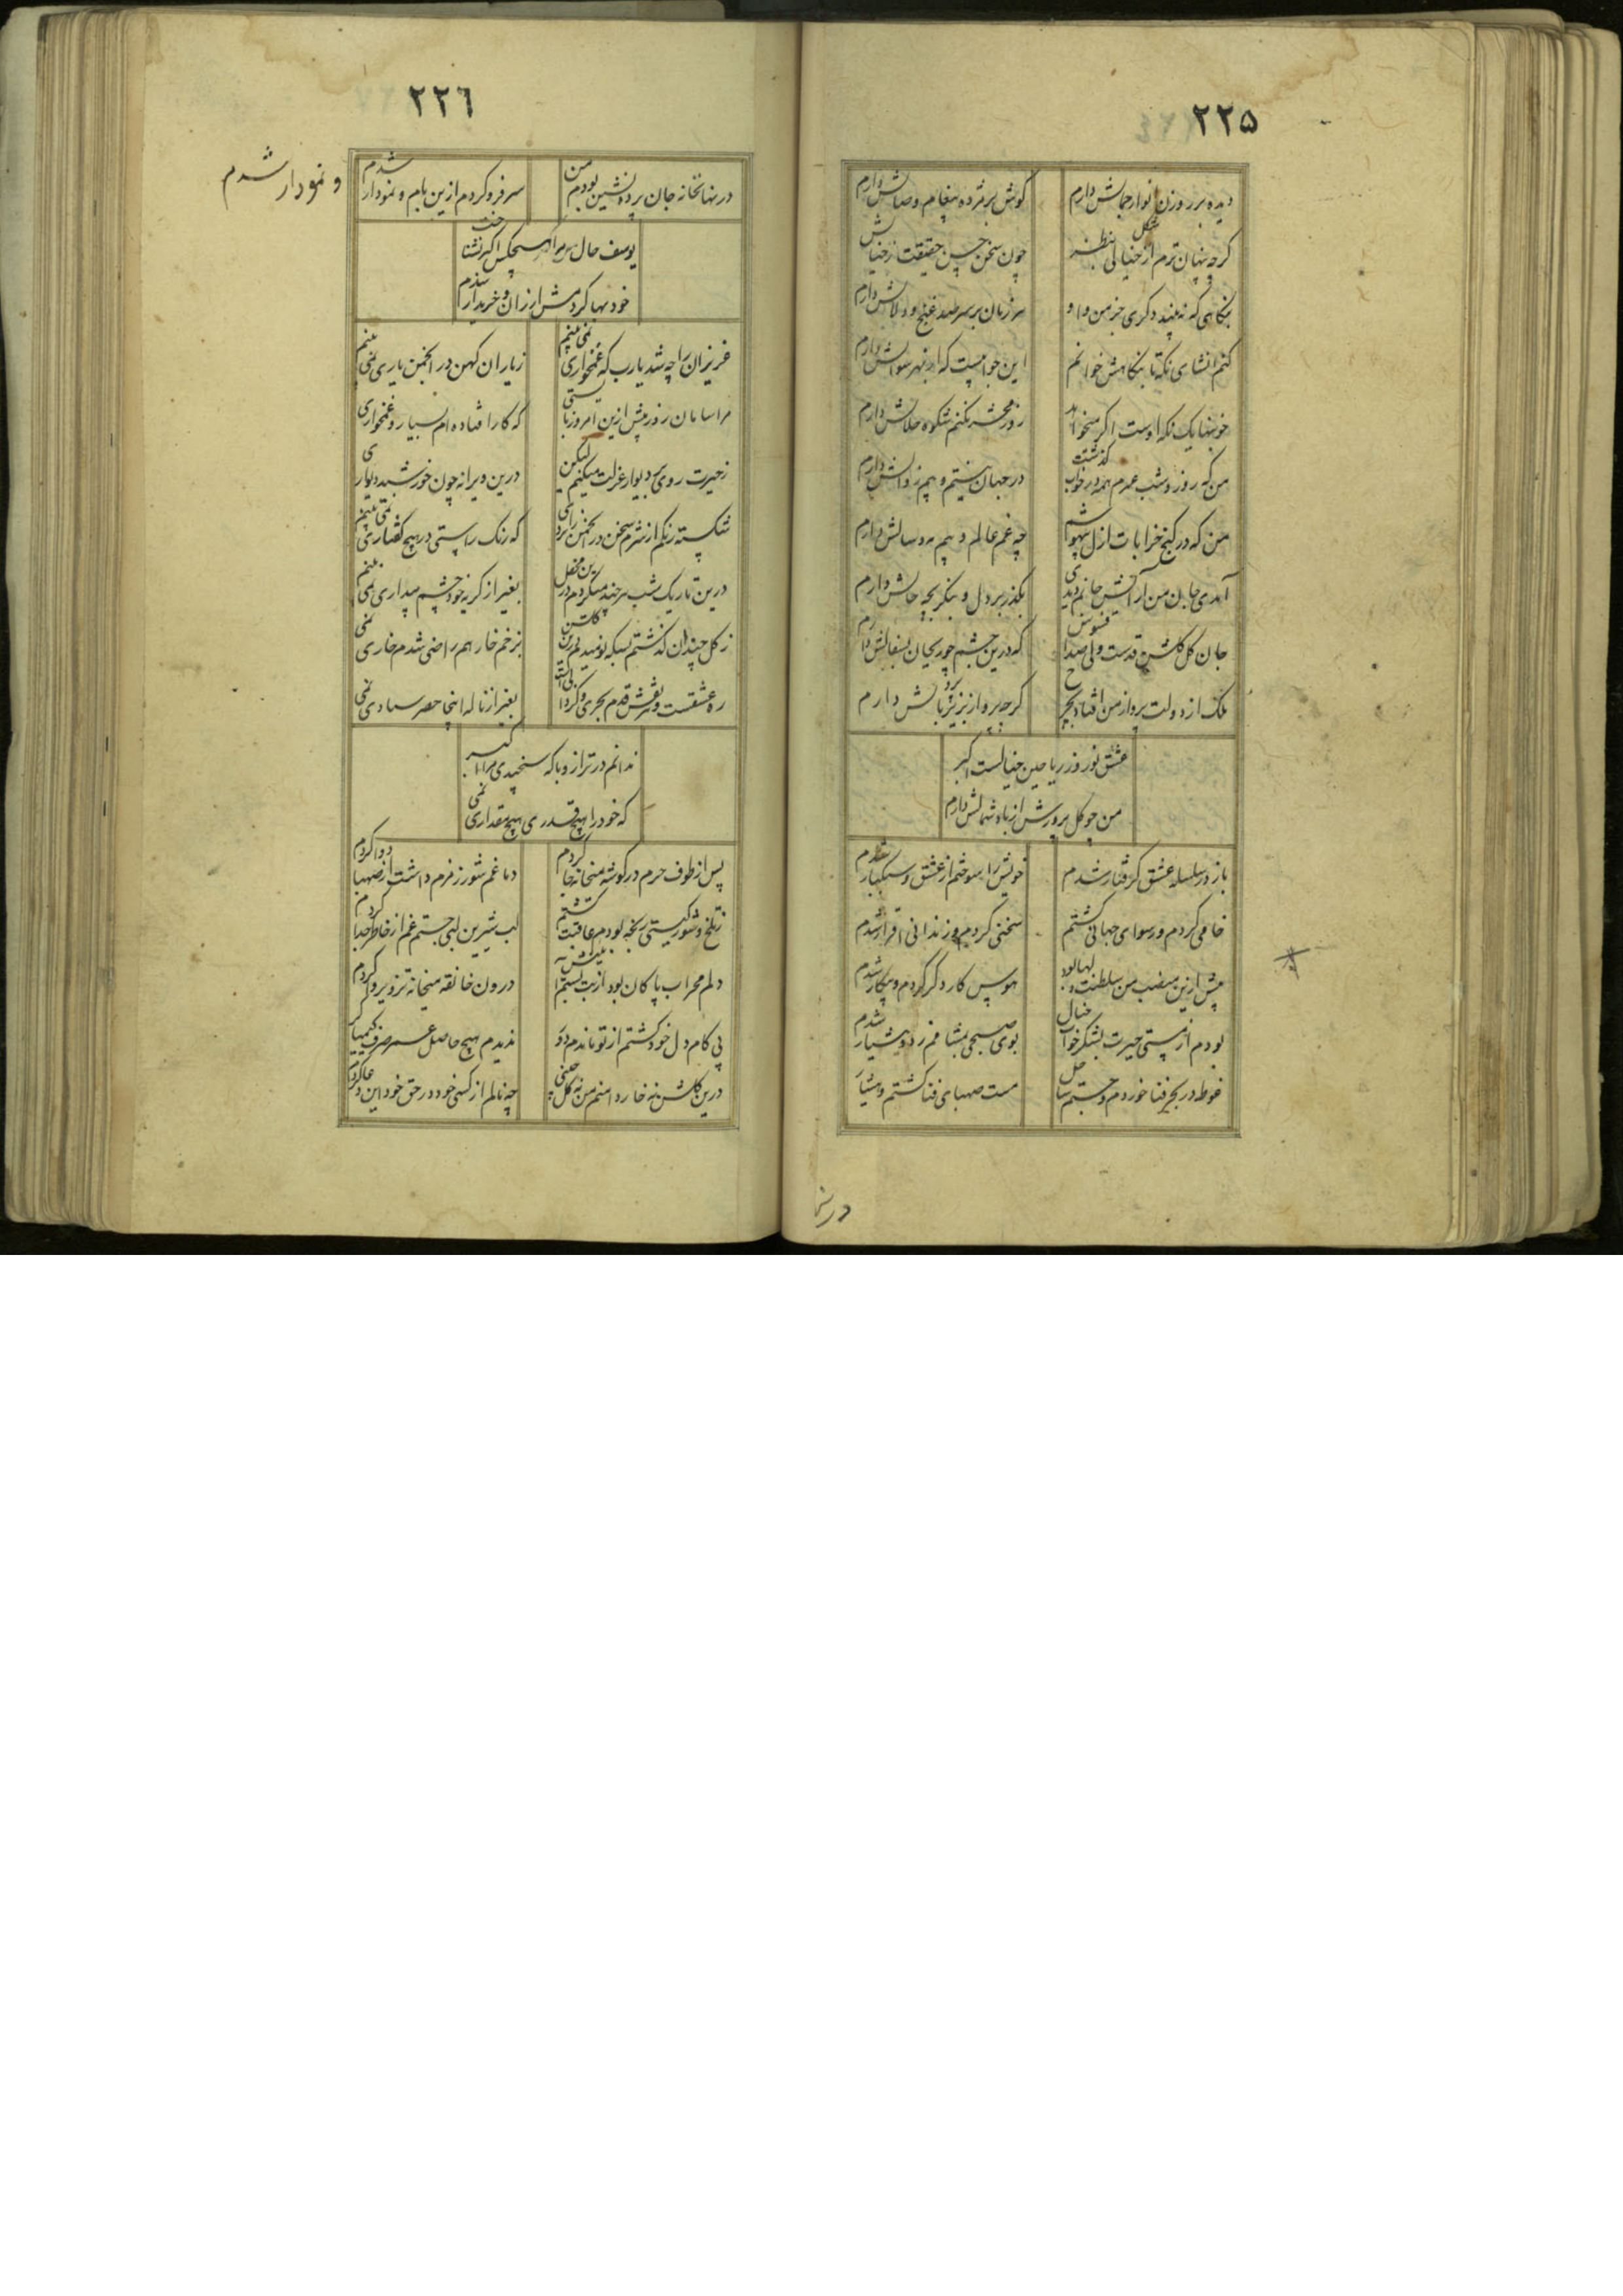 ٢٢۵
دیده بر روزن انوار جمالش دارم
گوش بر مژده پیغام وصالش دارم
گرچه پنهان ترم از خیالی بنظر
چون سخن حسن حقیقت ز خیالش
نگاهی که نه بیند دگری جز من و او
هر زمان بر سر صد غنج و دلالش دارم
کنم انشای نکه تا بنگاهش خوانم
این جوابیست که از بهر سوالش دارم
خونبها یک نکه اوست اگر میخواهد
روز محشر نکنم شکوه حلالش دارم
من که روز و شب عمرم همه در خواب گذشت
در جهان نیستم و بیم زوالش دارم
من که در کنج خرابات ازل بیهوشم
چه غم عالم و بیم مه و سالش دارم
آمدی جان من آرایش جانم دیدی
بگذر بر دل و بنگر بچه حالش دارم
جان گل گلشن قدست ولی صد افسوس
که درین چشم چو ریحان بسفالش دارم
ملک از دولت پرواز من افتاد بچرخ
گرچه پرواز بزیر پر و بالش دارم
عشق نوروز ریاحین خیالست اکبر
من چو گل پرورش از باد شمالش دارم
باز در سلسله عشق گرفتار شدم
خویش را سوختم از عشق و سبکبار شدم
خامی کردم و رسوای جهانی گشتم
سخنی کردم و زندانی اقرار شدم
پیش ازین منصب من سلطنت دلها بود
هوس کار دگر کردم و بیکار شدم
بودم از مستی حیرت بشکر خواب خیال
بوی صبحی بمشامم زد و هشیار شدم
غوطه در بحر فنا خوردم و جستم ساحل
مست صهبای فنا گشتم و هشیار
درنها
٢٢٦
در نهانخانه جان پرده نشین بودم من
سر فرو کردم ازین بام و نمودار شدم
و نمودار شدم
یوسف حال مرا هیچکس اکبر نشناخت
خود بها کردمش ارزان و خریدار شدم
عزیزان را چه شد یارب که غمخواری نمی بینم
ز یاران کهن در انجمن یاری نمی بینم
مرا سامان روز پیش ازین امروز بایستی
که کار افتاده ام بسیار و غمخواری
ز حیرت روی بر دیوار عزلت میکنم لیکن
درین ویرانه چون خورشید دیواری
شکسته رنگم از شرم سخن در انجمن رای
که رنگ راستی در هیچ گفتاری نمی بینم
درین تاریک شب هر چند میکردم درین محفل
بغیر از گریه خود چشم بیداری نمی بینم
ز گل چندان گذشتم بسکه نومیدم درین گلشن
بزخم خار هم راضی شدم خاری نمی
ره عشقست و نقش قدم بحری و گردابی است
بغیر از ناله اینجا نمی
ندانم در ترازو با که سنجیدی مرا اکبر
که خود را هیچ قدری هیچ مقداری نمی
پس از طوف حرم در گوشه میخانه جا کردم
دماغم شور زمزم داشت از صهبا دوا کردم
ز تلخ و شور گیتی رنجه بودم عاقبت گشتم
لب شیرین لبی جستم غم از خاطر جدا کردم
دلم محراب پاکان بود از بت
درون خانقه میخانه تزویر و کردم
پی کام دل خود گشتم از تو ماندم دور
ندیدم هیچ حاصل عمر صرف کیمیا کردم
درین گلشن نه خار دامنم من نه گل جیبی
چه نالم از کسی خود در حق خود این دعا کردم